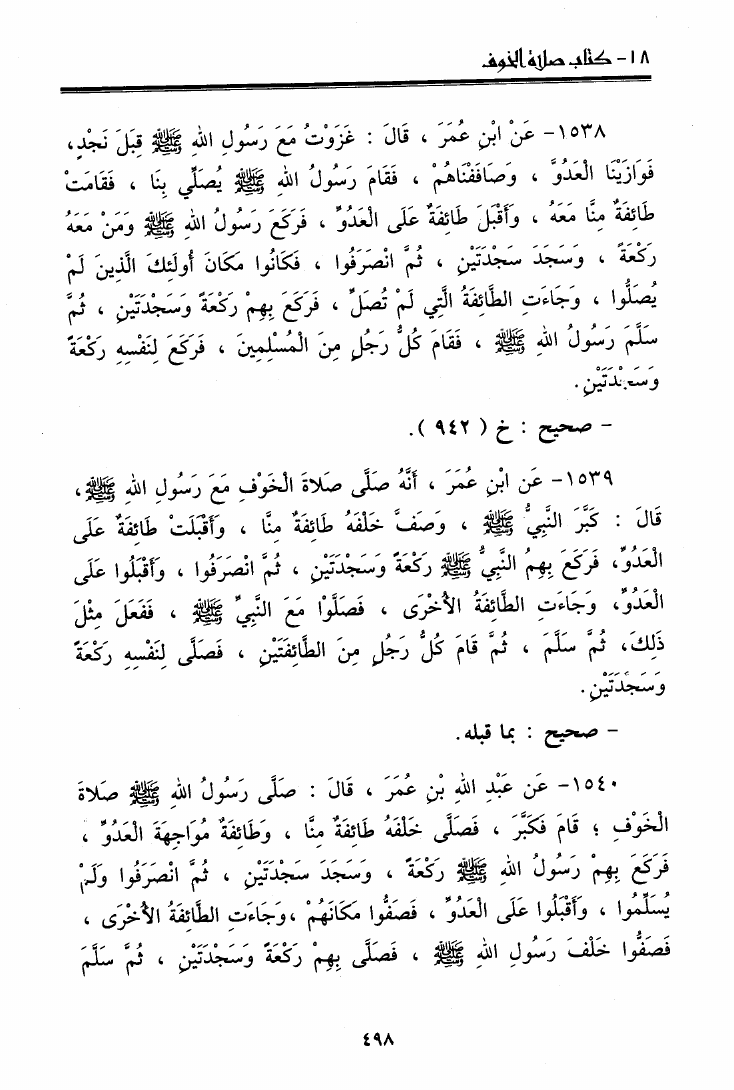 ١٨- كتاب صلاة الخوف
١٥٣٨- عَنْ ابْنِ عُمَرَ ، قَالَ : غَزَوْتُ مَعَ رَسُولِ اللهِ ﷺ قِبَلَ نَجْدٍ،
فَوَازَيْنَا الْعَدُوَّ ، وَصَافَفْنَاهُمْ ، فَقَامَ رَسُولُ اللهِ ﷺ يُصَلِّي بِنَا ، فَقَامَتْ
طَائِفَةٌ مِنَّا مَعَهُ ، وَأَقْبَلَ طَائِفَةٌ عَلَى الْعَدُوِّ ، فَرَكَعَ رَسُولُ اللهِ ﷺ وَمَنْ مَعَهُ
رَكْعَةً ، وَسَجَدَ سَجْدَتَيْنِ ، ثُمَّ انْصَرَفُوا ، فَكَانُوا مَكَانَ أُولَئِكَ الَّذِينَ لَمْ
يُصَلُّوا ، وَجَاءَتِ الطَّائِفَةُ الَّتِي لَمْ تُصَلِّ ، فَرَكَعَ بِهِمْ رَكْعَةً وَسَجْدَتَيْنِ ، ثُمَّ
سَلَّمَ رَسُولُ اللهِ ﷺ ، فَقَامَ كُلُّ رَجُلٍ مِنَ الْمُسْلِمِينَ ، فَرَكَعَ لِنَفْسِهِ رَكْعَةً
وَسَجْدَتَيْنِ.
- صحيح : خ ( ٩٤٢ ).
١٥٣٩- عَن ابْنِ عُمَرَ ، أَنَّهُ صَلَّى صَلَاةَ الْخَوْفِ مَعَ رَسُولِ اللهِ ﷺ،
قَالَ : كَبَّرَ النَّبِيُّ ﷺ ، وَصَفَّ خَلْفَهُ طَائِفَةٌ مِنَّا ، وَأَقْبَلَتْ طَائِفَةٌ عَلَى
الْعَدُوِّ، فَرَكَعَ بِهِمُ النَّبِيُّ ﷺ رَكْعَةً وَسَجْدَتَيْنِ ، ثُمَّ انْصَرَفُوا ، وَأَقْبَلُوا عَلَى
الْعَدُوِّ، وَجَاءَتِ الطَّائِفَةُ الأُخْرَى ، فَصَلَّوْا مَعَ النَّبِيِّ ﷺ ، فَفَعَلَ مِثْلَ
ذَلِكَ، ثُمَّ سَلَّمَ ، ثُمَّ قَامَ كُلُّ رَجُلٍ مِنَ الطَّائِفَتَيْنِ ، فَصَلَّى لِنَفْسِهِ رَكْعَةً
وَسَجْدَتَيْنِ.
- صحيح : بما قبله.
١٥٤٠- عَن عَبْدِ اللهِ بْنِ عُمَرَ ، قَالَ : صَلَّى رَسُولُ اللهِ ﷺ صَلَاةَ
الْخَوْفِ ؛ قَامَ فَكَبَّرَ ، فَصَلَّى خَلْفَهُ طَائِفَةٌ مِنَّا ، وَطَائِفَةٌ مُوَاجِهَةَ الْعَدُوِّ ،
فَرَكَعَ بِهِمْ رَسُولُ اللهِ ﷺ رَكْعَةً ، وَسَجَدَ سَجْدَتَيْنِ ، ثُمَّ انْصَرَفُوا وَلَمْ
يُسَلِّمُوا ، وَأَقْبَلُوا عَلَى الْعَدُوِّ ، فَصَفُّوا مَكَانَهُمْ ، وَجَاءَتِ الطَّائِفَةُ الأُخْرَى ،
فَصَفُّوا خَلْفَ رَسُولِ اللهِ ﷺ ، فَصَلَّى بِهِمْ رَكْعَةً وَسَجْدَتَيْنِ ، ثُمَّ سَلَّمَ
٤٩٨